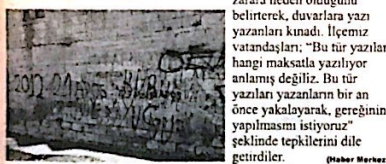 zarara neden olduğunu
belirterek, duvarlara yazı
yazanları kınadı. İlçemiz
vatandaşları; "Bu tür yazılar
hangi maksatla yazılıyor
anlamış değiliz. Bu tür
yazıları yazanların bir an
önce yakalayarak, gereğinin
yapılmasını istiyoruz"
şeklinde tepkilerini dile
getirdiler. (Haber Merkez
2012 21